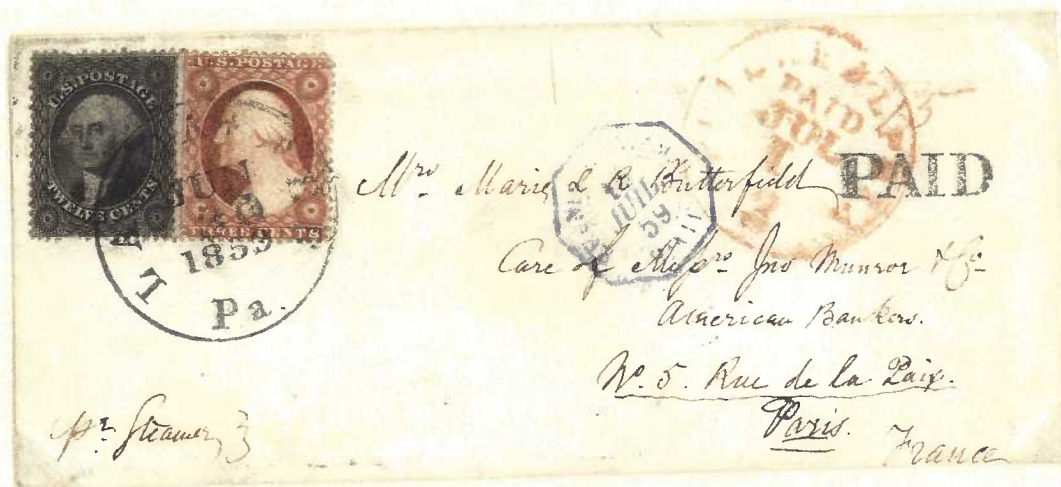 U.S. POSTAGE
TWELVE CENTS
U.S. POSTAGE
THREE CENTS
JUN
1859
Pa.
PAID
JUL
PAID
JUIL
59
Mrs. Marie L R Butterfield
Care of Messrs Jno Munroe & Co
American Bankers.
No. 5. Rue de la Paix.
Paris.
France
pr Steamer